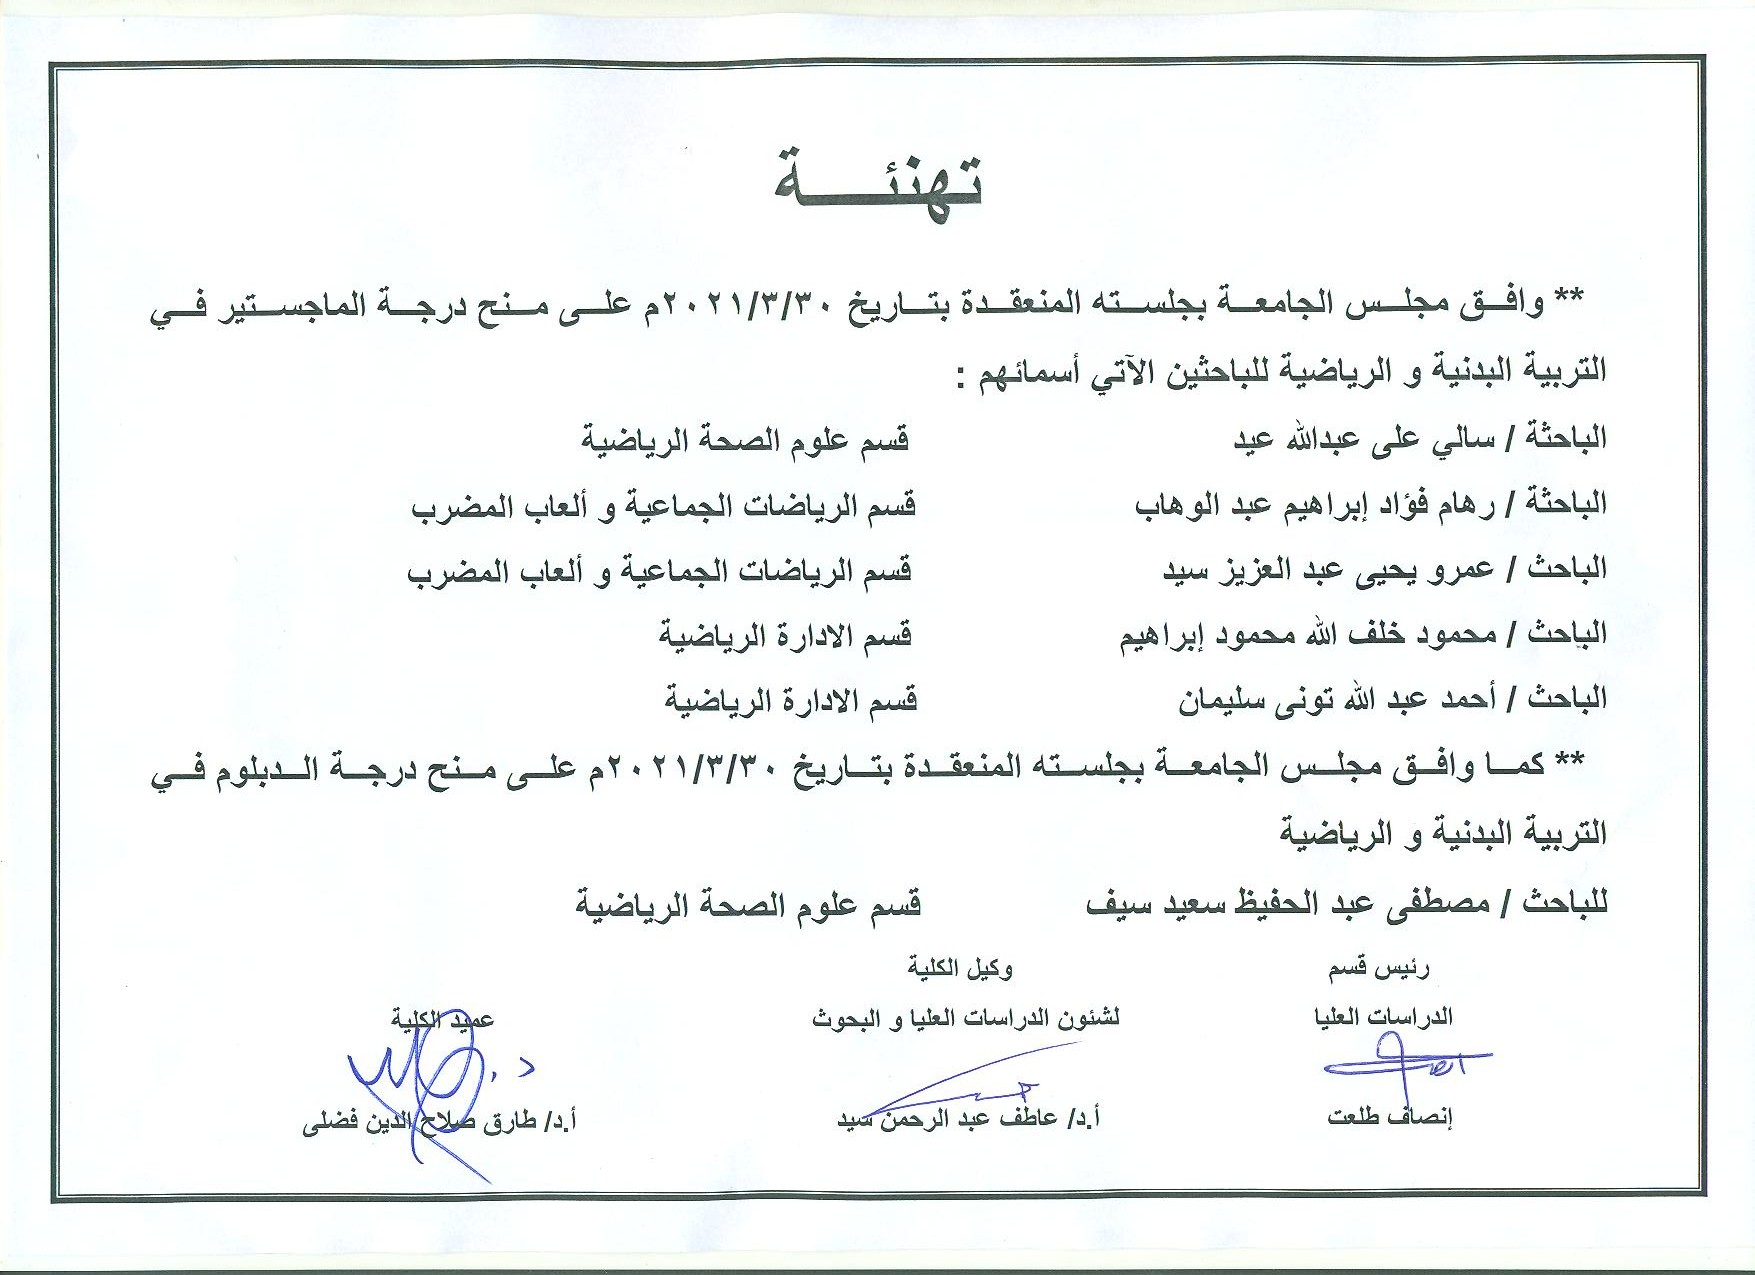 تهنئة
** وافق مجلس الجامعة بجلسته المنعقدة بتاريخ ٢٠٢١/٣/٣٠م على منح درجة الماجستير في
التربية البدنية و الرياضية للباحثين الآتي أسمائهم :
الباحثة / سالي على عبدالله عيد قسم علوم الصحة الرياضية
الباحثة / رهام فؤاد إبراهيم عبد الوهاب قسم الرياضات الجماعية و ألعاب المضرب
الباحث / عمرو يحيى عبد العزيز سيد قسم الرياضات الجماعية و ألعاب المضرب
الباحث / محمود خلف الله محمود إبراهيم قسم الادارة الرياضية
الباحث / أحمد عبد الله تونى سليمان قسم الادارة الرياضية
** كما وافق مجلس الجامعة بجلسته المنعقدة بتاريخ ٢٠٢١/٣/٣٠م على منح درجة الدبلوم في
التربية البدنية و الرياضية
للباحث / مصطفى عبد الحفيظ سعيد سيف قسم علوم الصحة الرياضية
رئيس قسم وكيل الكلية
الدراسات العليا لشئون الدراسات العليا و البحوث عميد الكلية
إنصاف طلعت أ.د/ عاطف عبد الرحمن سيد أ.د/ طارق صلاح الدين فضلى